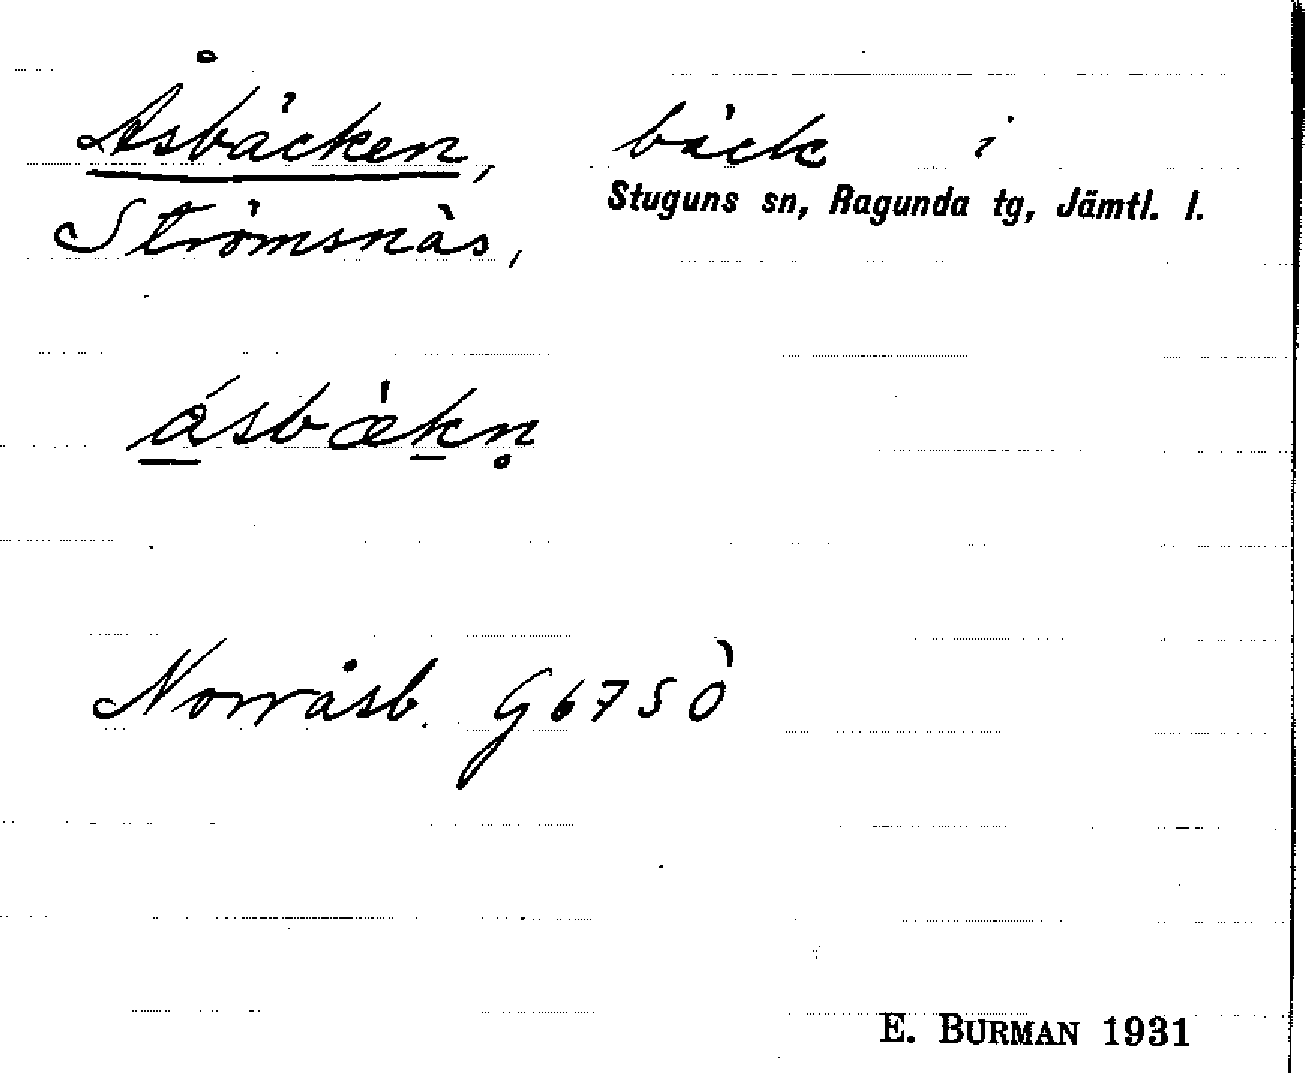 Åsbäcken, bäck i
Stuguns sn, Ragunda tg, Jämtl. l.
Strömsnäs,
åsbæ̀kn̥
Norråsb. G67SÖ
E. BURMAN 1931